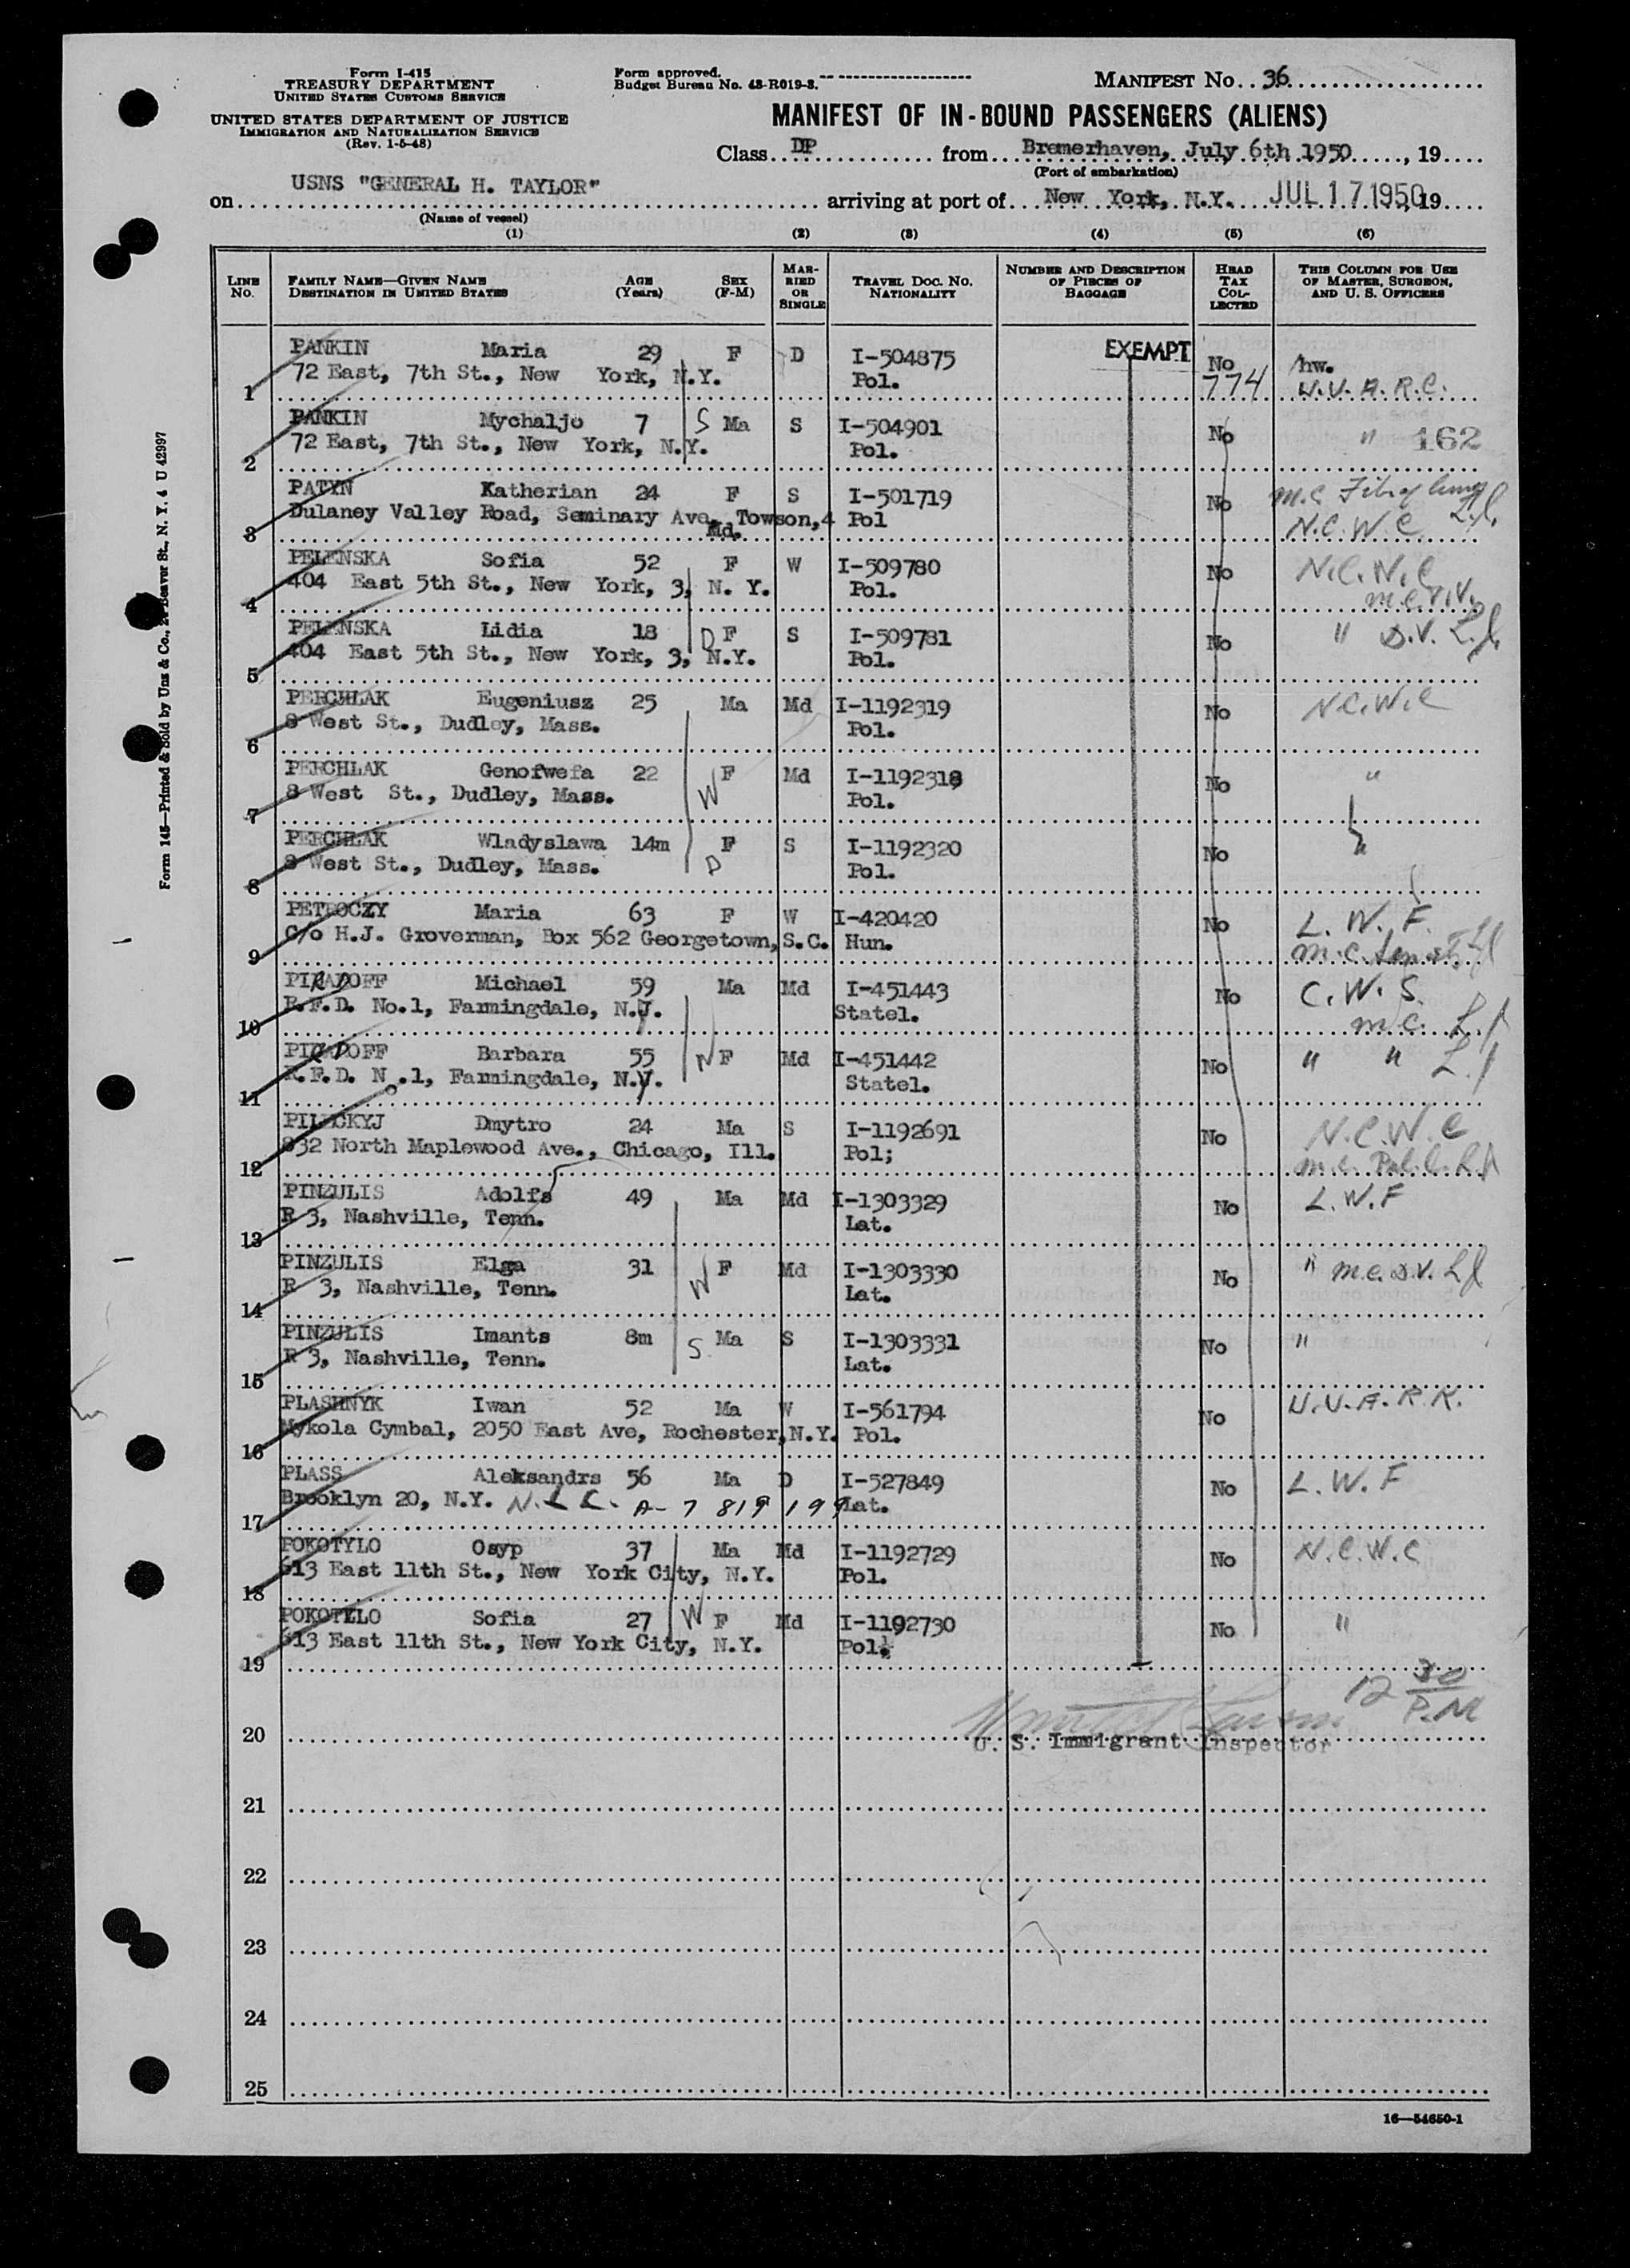 Form I-415
TREASURY DEPARTMENT
UNITED STATES CUSTOMS SERVICE
UNITED STATES DEPARTMENT OF JUSTICE
IMMIGRATION AND NATURALIZATION SERVICE
(Rev. 1-5-48)
Form approved.
Budget Bureau No. 43-R019-3.
MANIFEST No. 36
MANIFEST OF IN-BOUND PASSENGERS (ALIENS)
Class DP from Bremerhaven, July 6th 1950, 19
(Port of embarkation)
on USNS "GENERAL H. TAYLOR" arriving at port of New York, N.Y. JUL 17 1950, 19
(Name of vessel)
(1) (2) (3) (4) (5) (6)
LINE No. FAMILY NAME—GIVEN NAME DESTINATION IN UNITED STATES AGE (Years) SEX (F-M) MARRIED OR SINGLE TRAVEL DOC. NO. NATIONALITY NUMBER AND DESCRIPTION OF PIECES OF BAGGAGE HEAD TAX COLLECTED THIS COLUMN FOR USE OF MASTER, SURGEON, AND U. S. OFFICERS
PANKIN Maria 29 F D I-504875 EXEMPT No hw.
1 72 East, 7th St., New York, N.Y. Pol. 774 U.U.A.R.C.
PANKIN Mychaljo 7 S Ma S I-504901 No " 162
2 72 East, 7th St., New York, N.Y. Pol.
PATYN Katherian 24 F S I-501719 No m.c.
3 Dulaney Valley Road, Seminary Ave, Towson,4 Md. Pol N.C.W.C.
PELENSKA Sofia 52 F W I-509780 No N.C.W.C
4 404 East 5th St., New York, 3, N. Y. Pol. m.c. V.V.
PELENSKA Lidia 18 D F S I-509781 No " D.V. L.f.
5 404 East 5th St., New York, 3, N.Y. Pol.
PERCHLAK Eugeniusz 25 Ma Md I-1192319 No N.C.W.C
6 8 West St., Dudley, Mass. Pol.
PERCHLAK Genofwefa 22 W F Md I-1192318 No "
7 8 West St., Dudley, Mass. Pol.
PERCHLAK Wladyslawa 14m D F S I-1192320 No "
8 8 West St., Dudley, Mass. Pol.
PETROCZY Maria 63 F W I-420420 No L.W.F.
9 C/o H.J. Groverman, Box 562 Georgetown, S.C. Hun. m.c.
PIRADOFF Michael 59 Ma Md I-451443 No C.W.S.
10 R.F.D. No.1, Farmingdale, N.J. Statel. m.c. L.f
PIRADOFF Barbara 55 W F Md I-451442 No " " L.f
11 R.F.D. No.1, Farmingdale, N.J. Statel.
PILECKYJ Dmytro 24 Ma S I-1192691 No N.C.W.C
12 832 North Maplewood Ave., Chicago, Ill. Pol; m.c.
PINZULIS Adolfs 49 Ma Md I-1303329 No L.W.F
13 R 3, Nashville, Tenn. Lat.
PINZULIS Elga 31 W F Md I-1303330 No " m.c. D.V. L.f
14 R 3, Nashville, Tenn. Lat.
PINZULIS Imants 8m S Ma S I-1303331 No "
15 R 3, Nashville, Tenn. Lat.
PLASHNYK Iwan 52 Ma W I-561794 No U.U.A.R.K.
16 Mykola Cymbal, 2050 East Ave, Rochester, N.Y. Pol.
PLASS Aleksandrs 56 Ma D I-527849 No L.W.F
17 Brooklyn 20, N.Y. N.L.C. A-7 819 199 Lat.
POKOTYLO Osyp 37 Ma Md I-1192729 No N.C.W.C
18 613 East 11th St., New York City, N.Y. Pol.
POKOTYLO Sofia 27 W F Md I-1192730 No "
19 613 East 11th St., New York City, N.Y. Pol.
12 30 P.M
20 U. S. Immigrant Inspector
21
22
23
24
25
16—54650-1
Form 145—Printed & Sold by Unz & Co., 24 Beaver St., N. Y. 4 U 42997